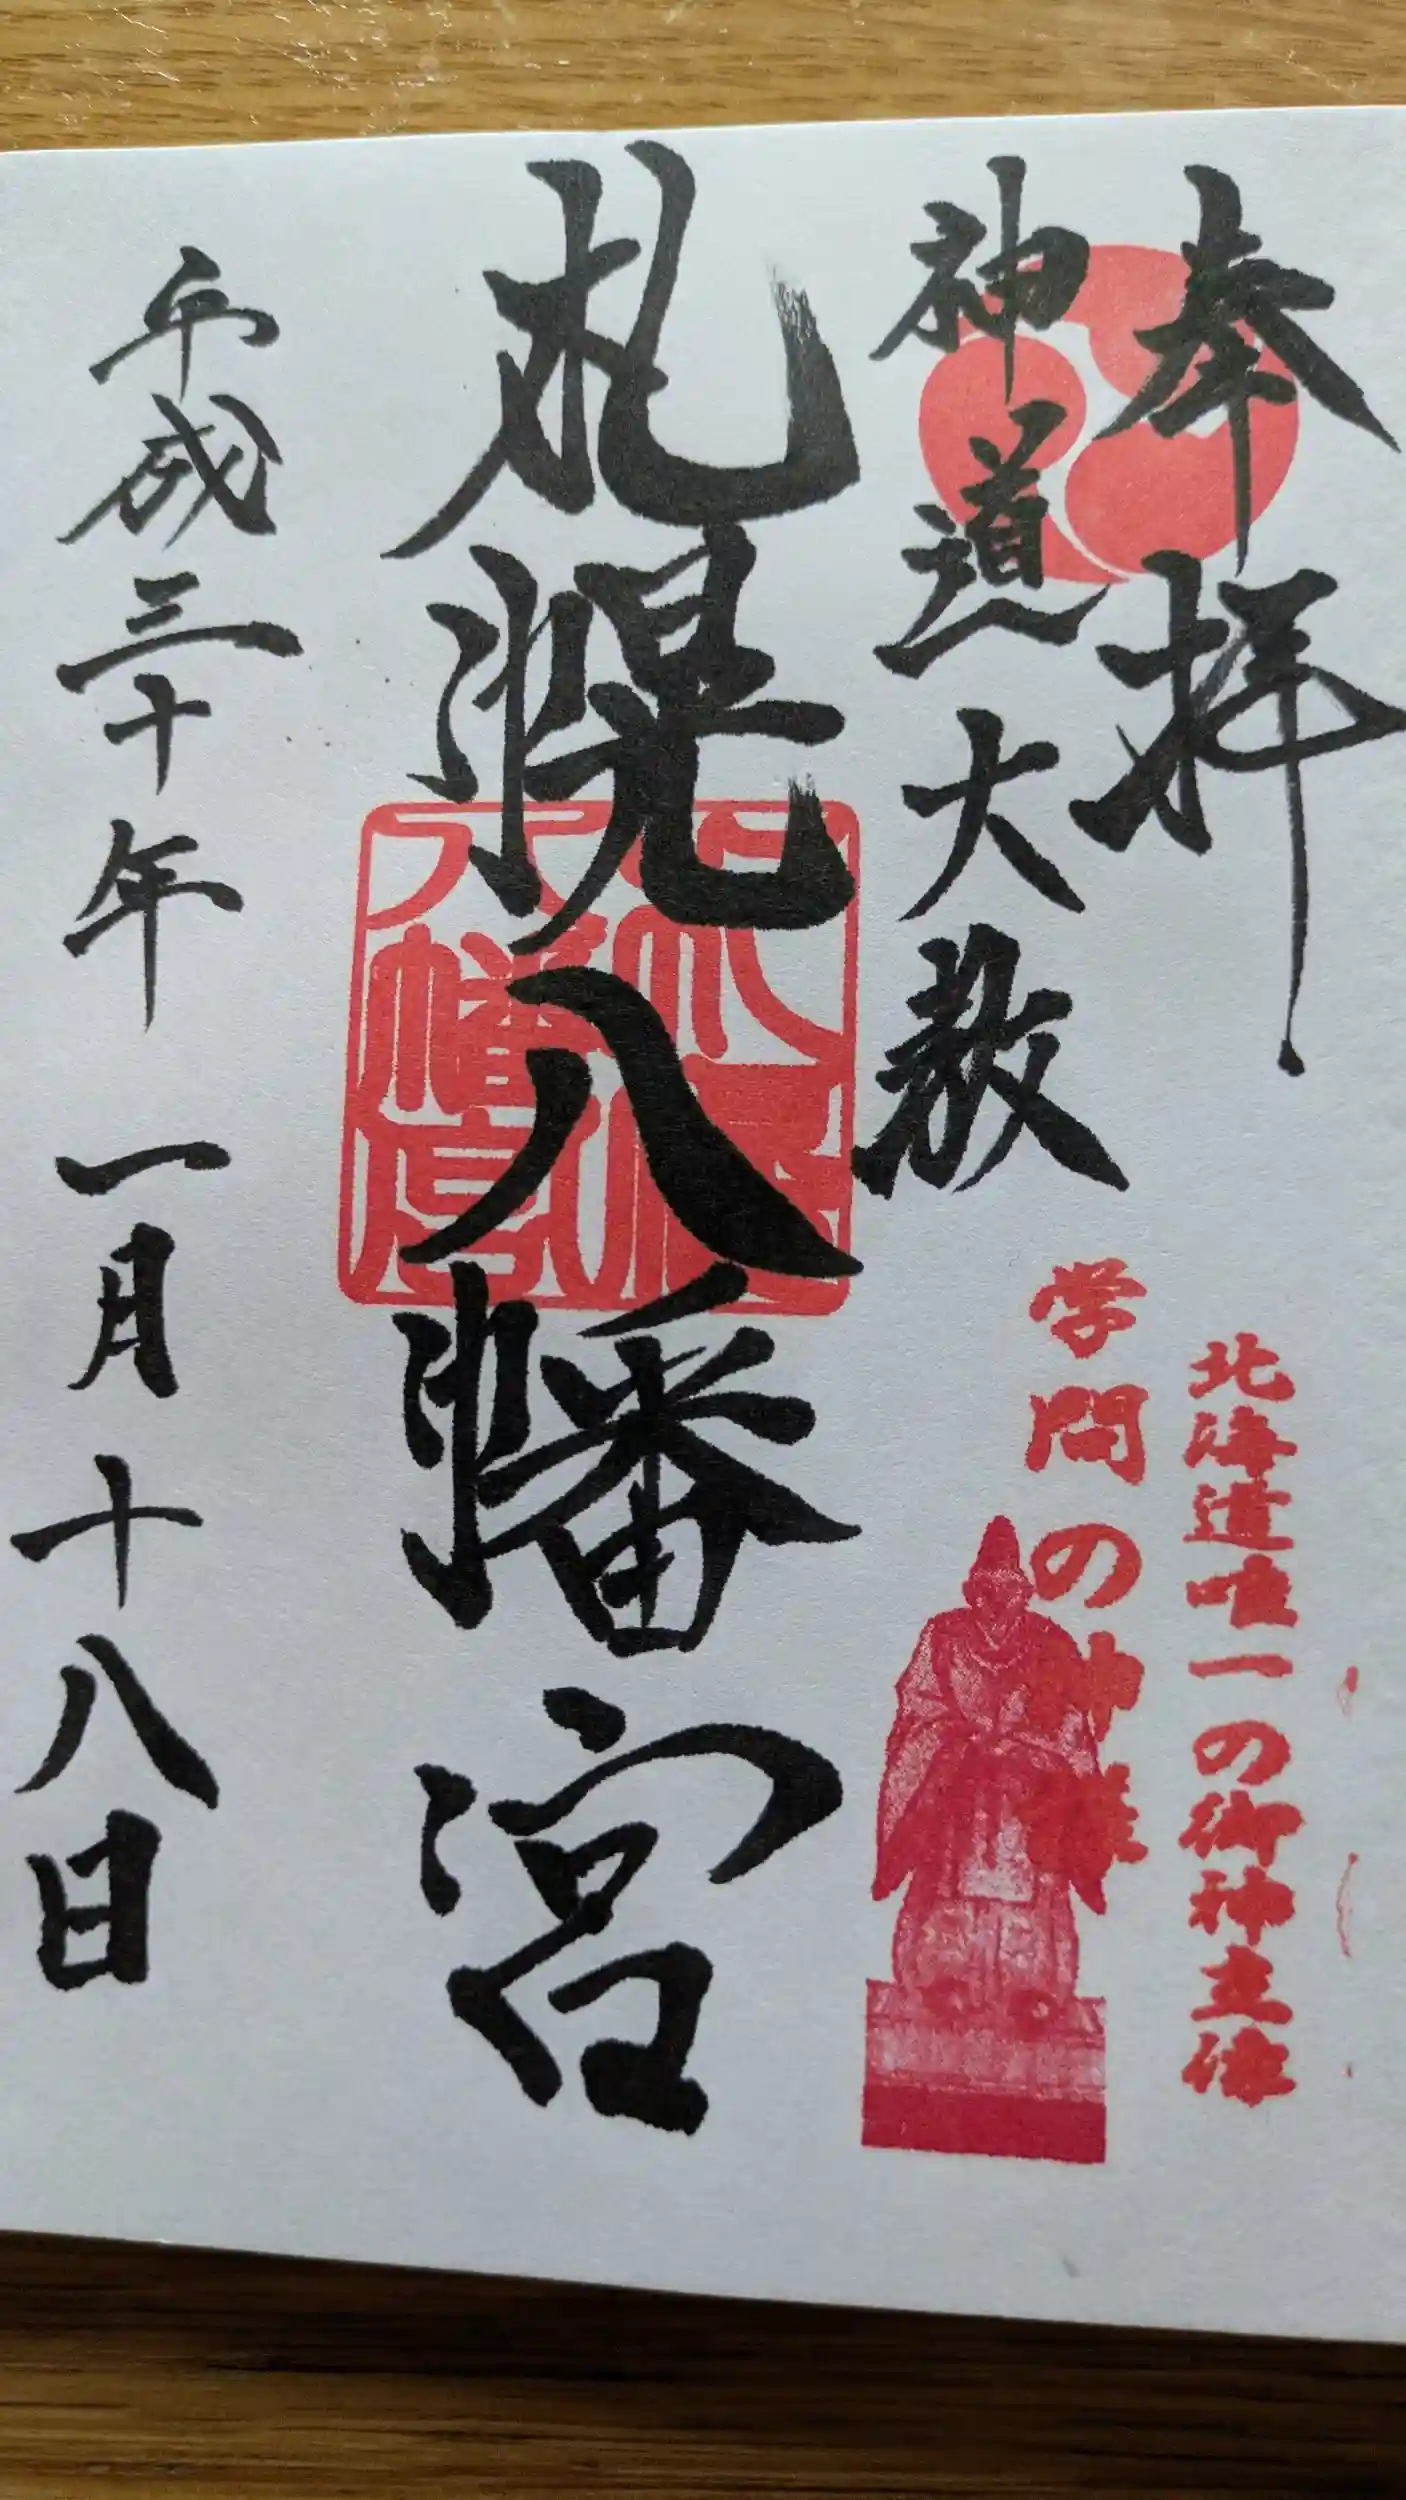 奉拝
神道大教
北海道唯一の御神主像
学問の神様
札幌八幡宮
札幌八幡宮
平成三十年一月十八日